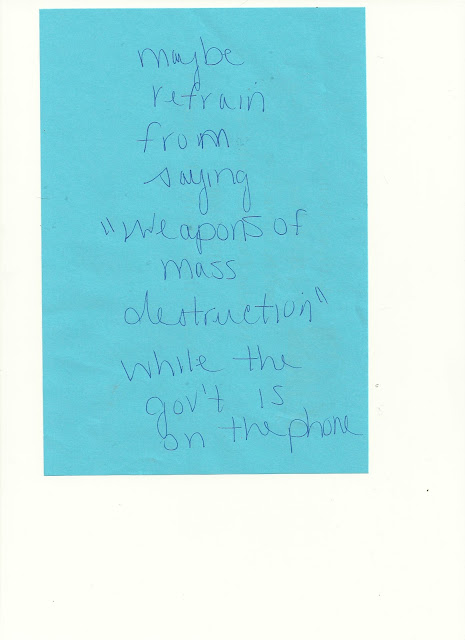 maybe
refrain
from
saying
"weapons of
mass
destruction"
while the
gov't is
on the phone